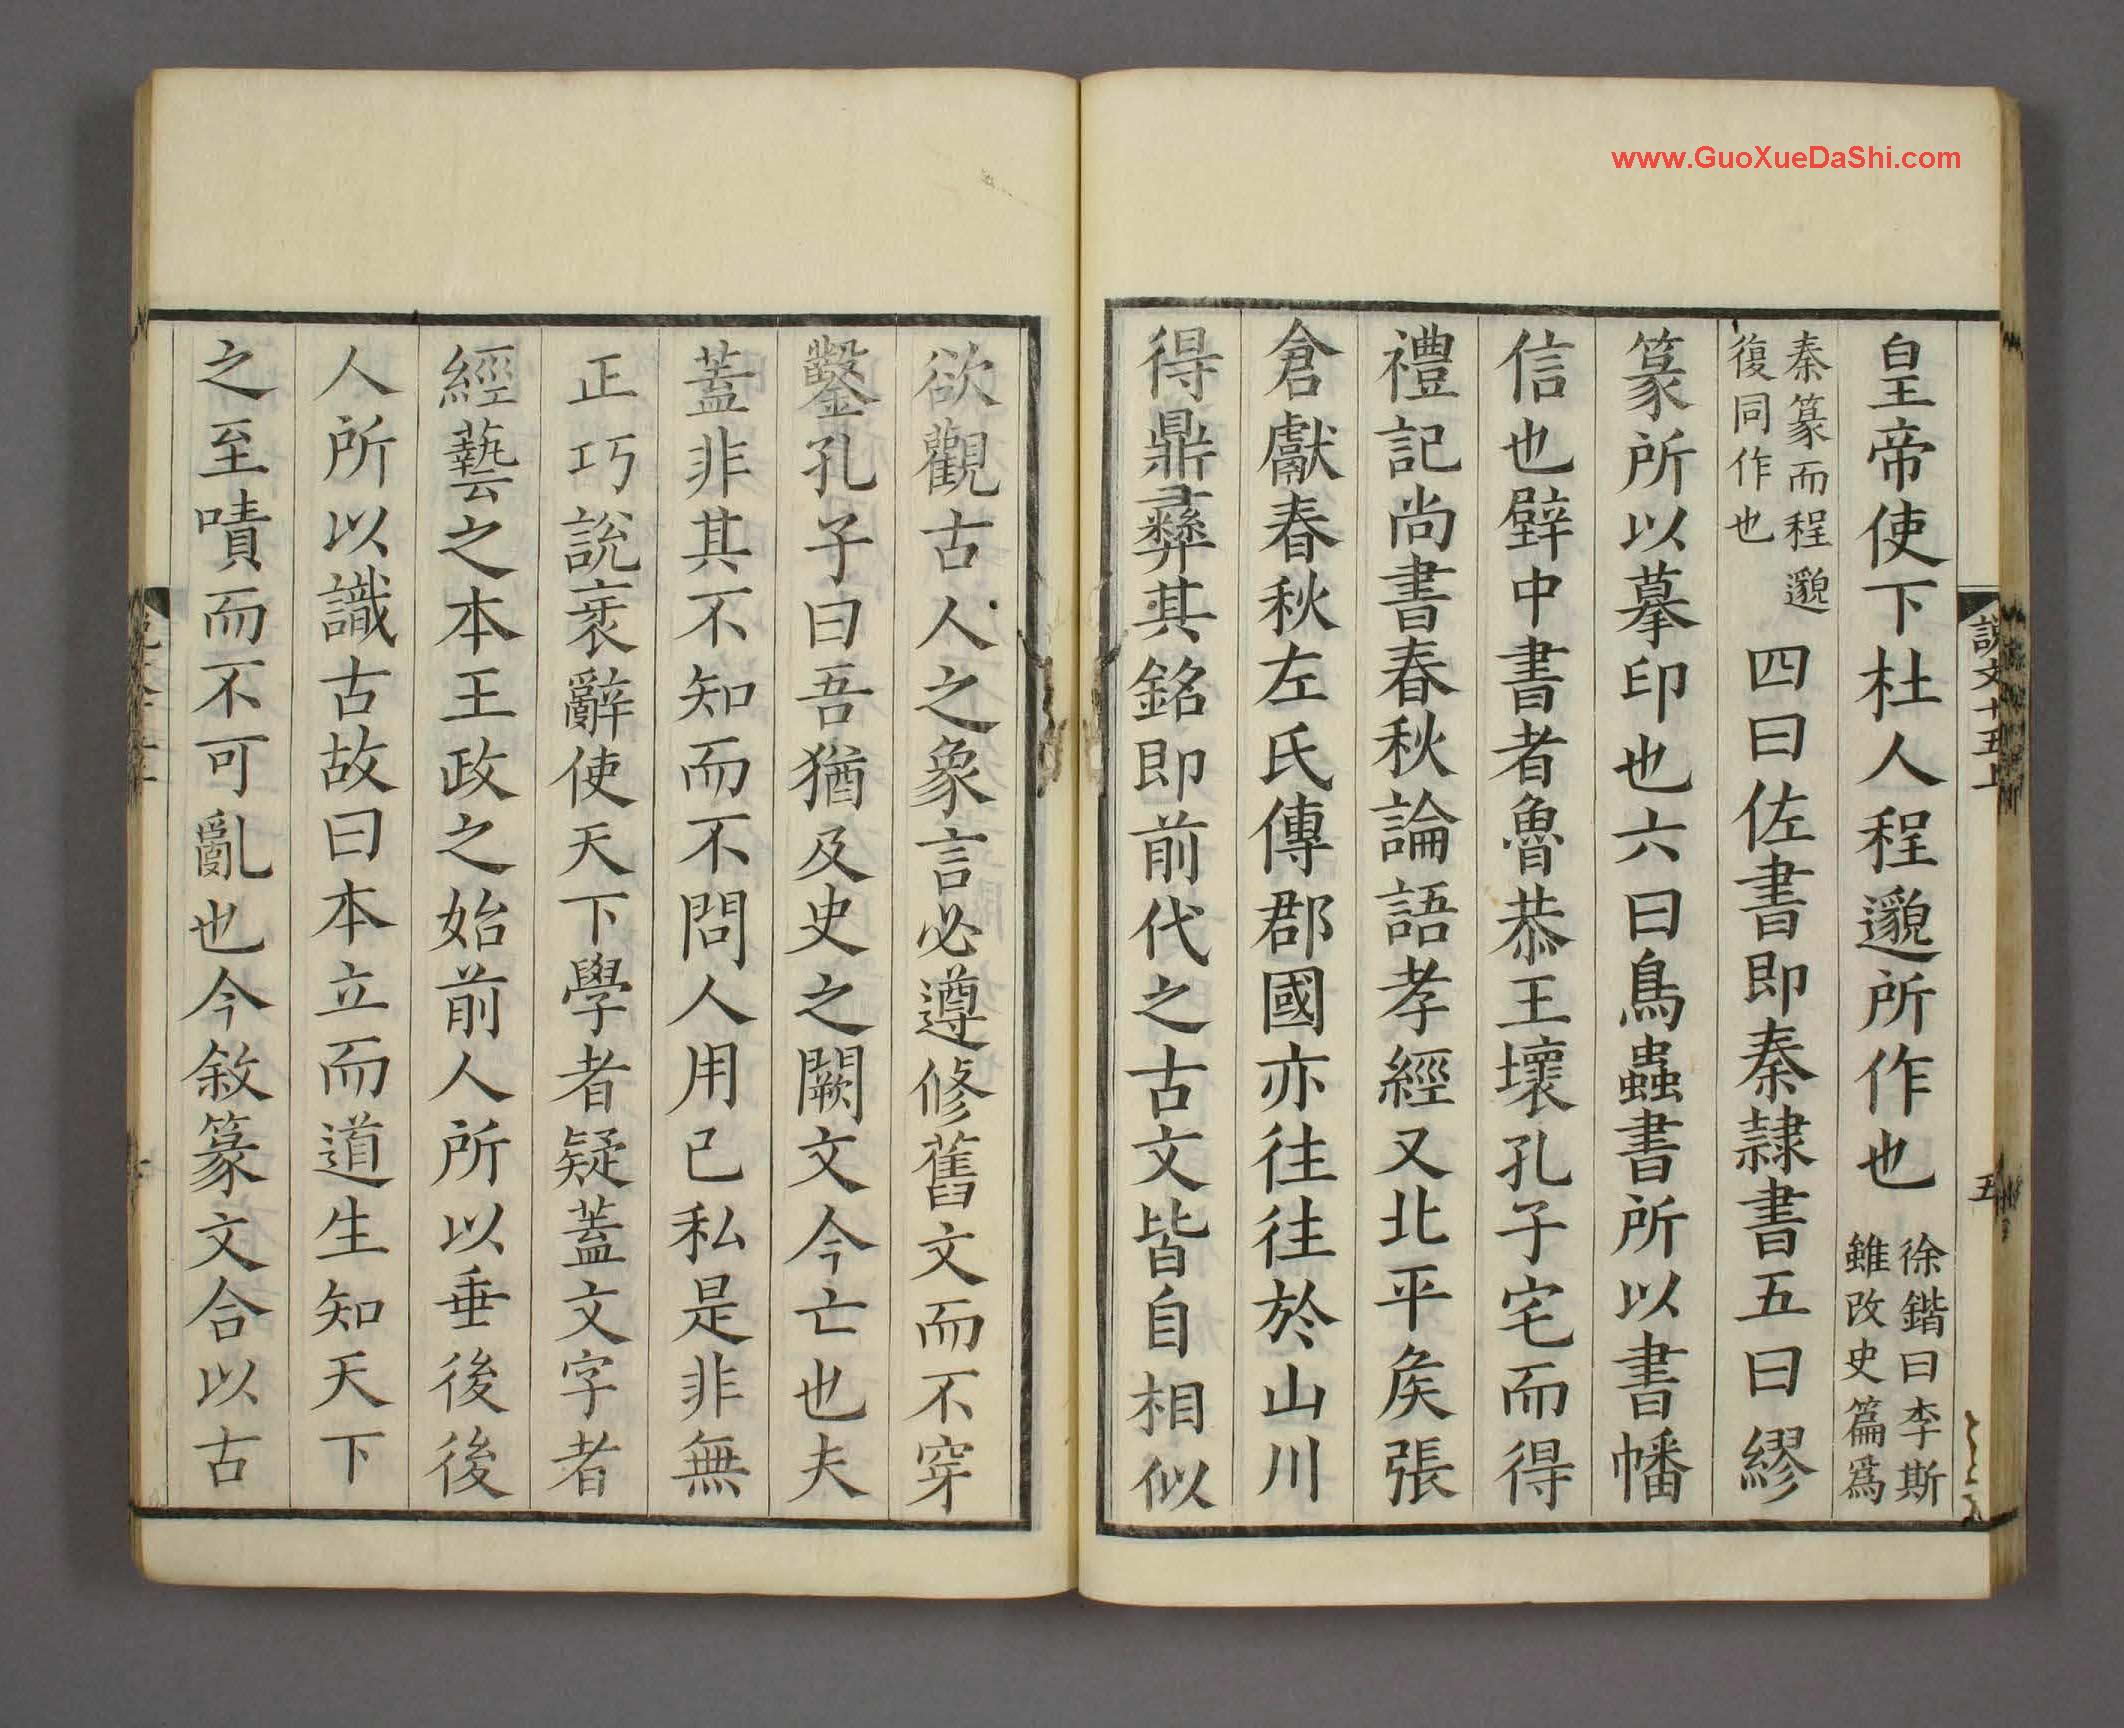 www.GuoXueDaShi.com
說文十五上
五
皇帝使下杜人程邈所作也 徐鍇曰李斯雖改史篇爲
秦篆而程邈復同作也 四曰佐書即秦隸書五曰繆
篆所以摹印也六曰鳥蟲書所以書幡
信也壁中書者魯恭王壞孔子宅而得
禮記尚書春秋論語孝經又北平矦張
倉獻春秋左氏傳郡國亦往往於山川
得鼎彝其銘即前代之古文皆自相似
欲觀古人之象言必遵修舊文而不穿
鑿孔子曰吾猶及史之闕文今亡也夫
蓋非其不知而不問人用已私是非無
正巧說衺辭使天下學者疑蓋文字者
經藝之本王政之始前人所以垂後後
人所以識古故曰本立而道生知天下
之至嘖而不可亂也今敘篆文合以古